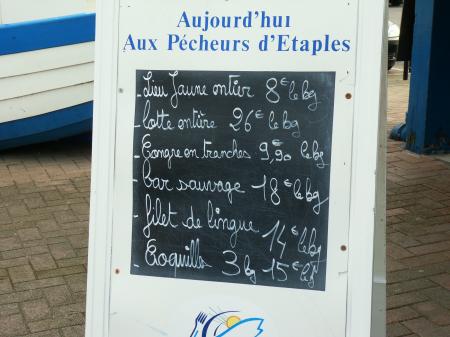 Aujourd'hui
Aux Pécheurs d'Etaples
- Lieu Jaune entier 8€ le kg
- lotte entière 26€ le kg
- Congre en tranches 9€,90 le kg
- bar sauvage 18€ le kg
- filet de lingue 14€ le kg
- Coquille 3 kg 15€ le kg